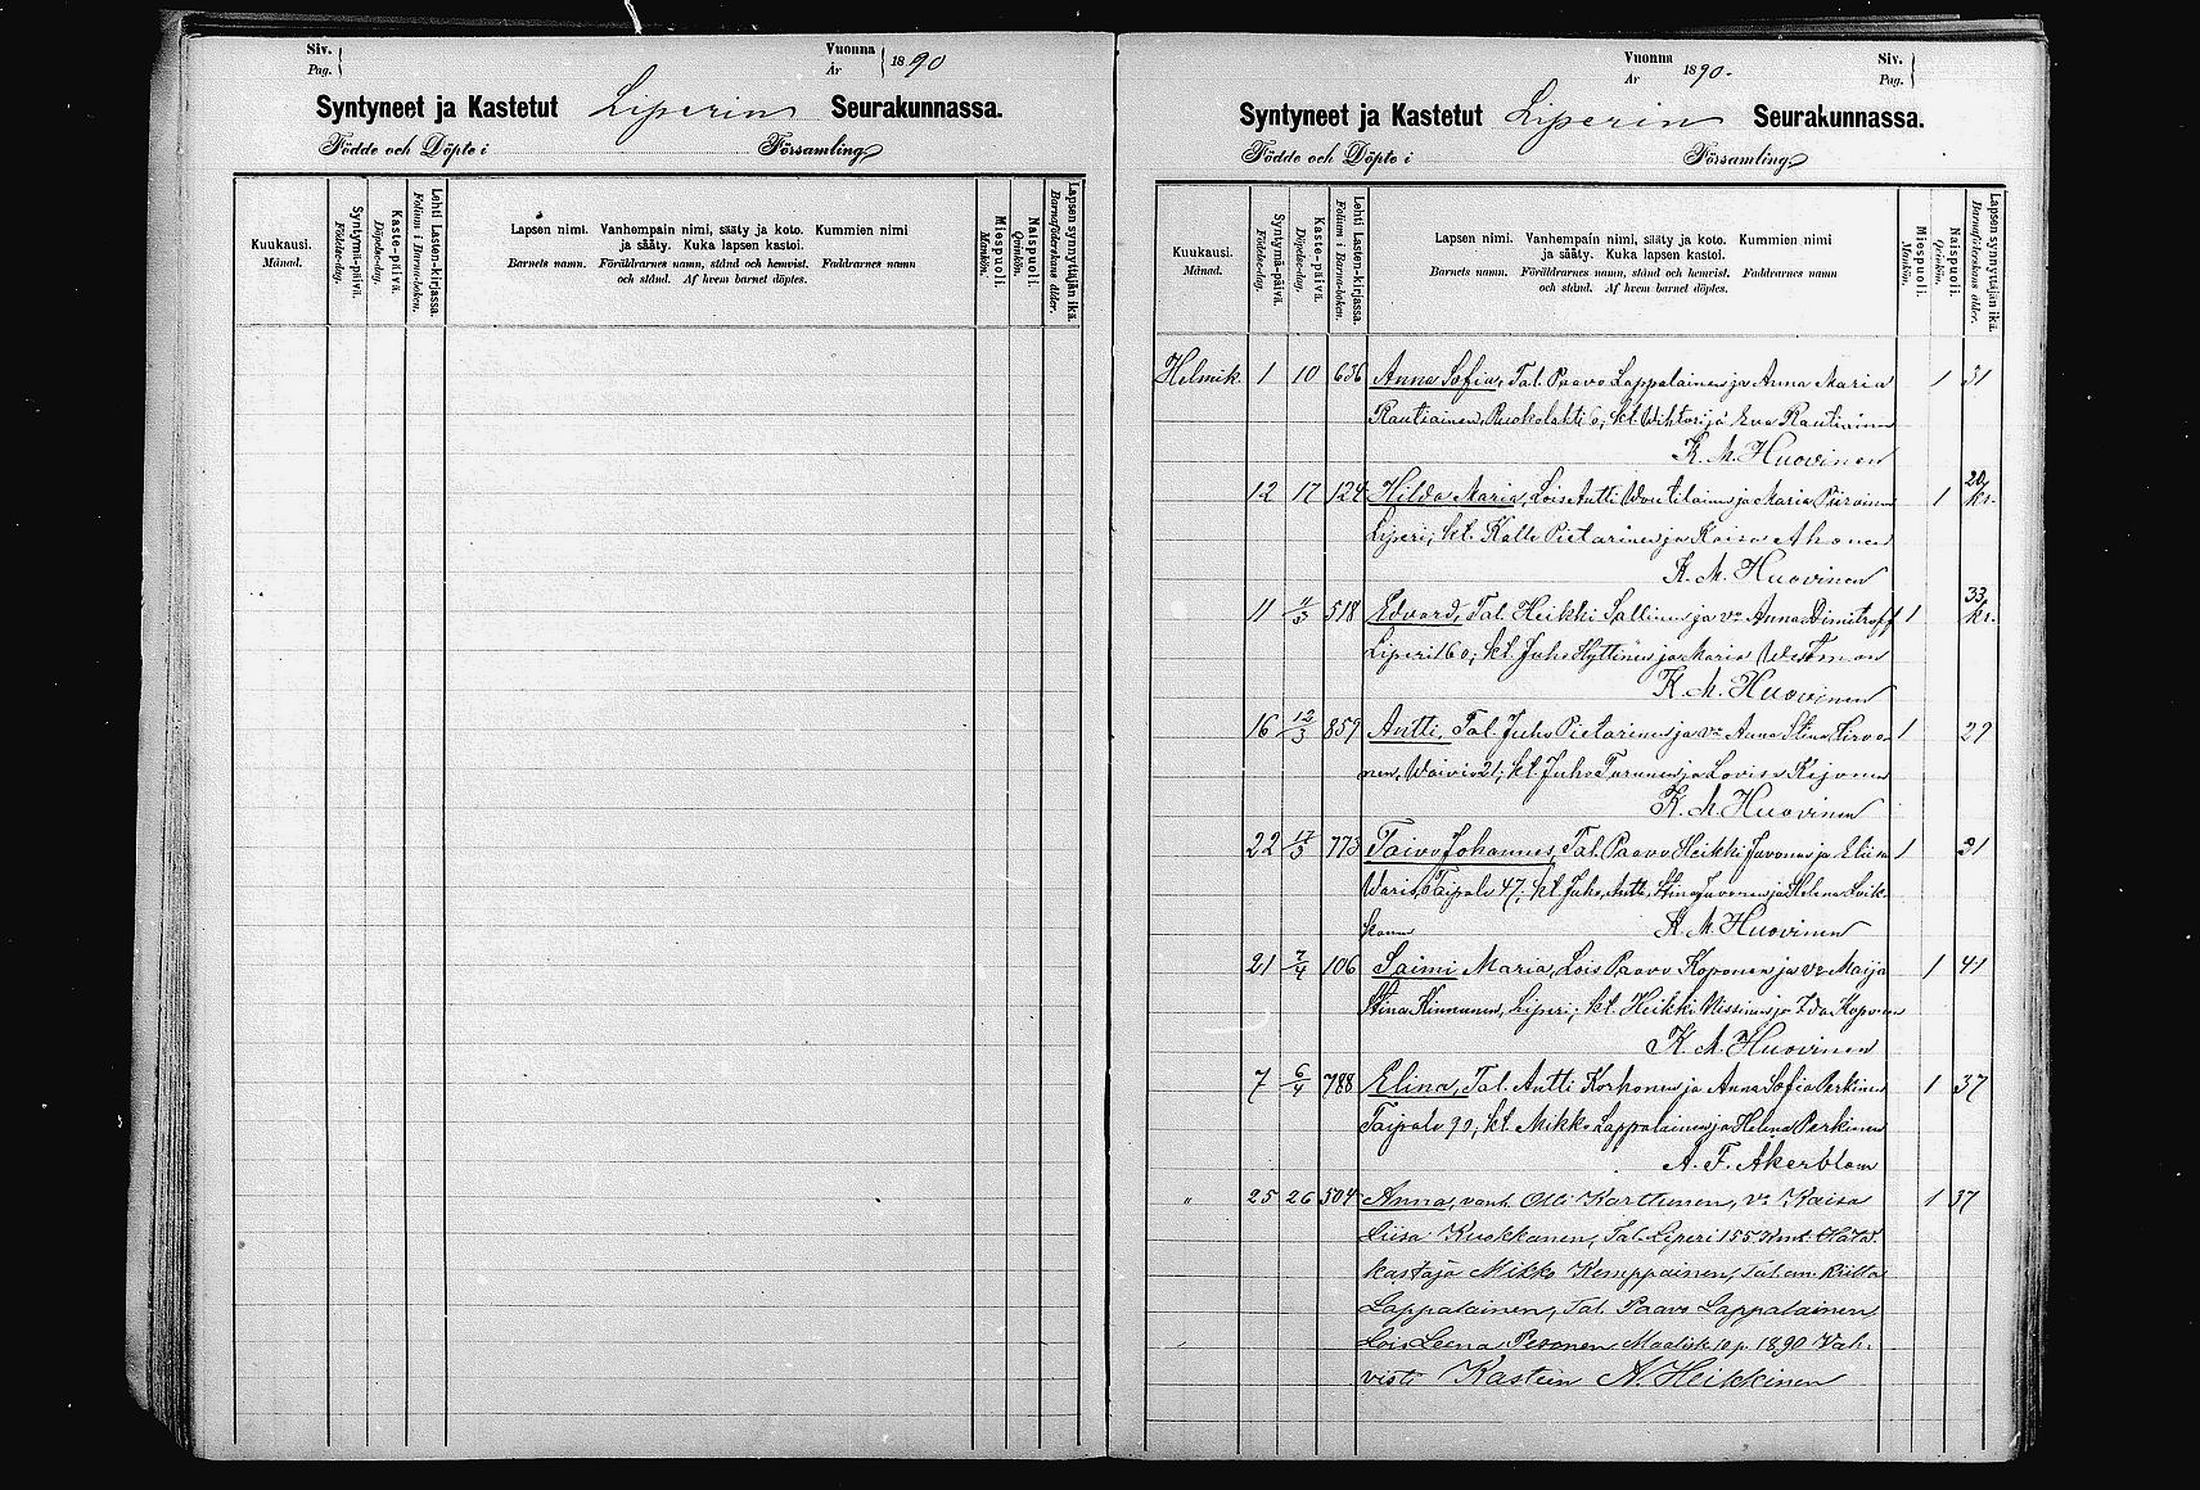 Siv.
Pag.
Vuonna
År
1890
Syntyneet ja Kastetut Liperin Seurakunnassa.
Födde och Döpte i Församling
Kuukausi.
Månad.
Syntymä-päivä.
Födelse-dag.
Kaste-päivä.
Döpelse-dag.
Lehti Lasten-kirjassa.
Folium i Barna-boken.
Lapsen nimi. Vanhempain nimi, sääty ja koto. Kummien nimi
ja sääty. Kuka lapsen kastoi.
Barnets namn. Föräldrarnes namn, stånd och hemvist. Faddrarnes namn
och stånd. Af hvem barnet döptes.
Miespuoli.
Mankön.
Naispuoli.
Qvinkön.
Lapsen synnyttäjän ikä.
Barnaföderskans ålder.
Vuonna
År
1890.
Siv.
Pag.
Syntyneet ja Kastetut Liperin Seurakunnassa.
Födde och Döpte i Församling
Kuukausi.
Månad.
Syntymä-päivä.
Födelse-dag.
Kaste-päivä.
Döpelse-dag.
Lehti Lasten-kirjassa.
Folium i Barna-boken.
Lapsen nimi. Vanhempain nimi, sääty ja koto. Kummien nimi
ja sääty. Kuka lapsen kastoi.
Barnets namn. Föräldrarnes namn, stånd och hemvist. Faddrarnes namn
och stånd. Af hvem barnet döptes.
Miespuoli.
Mankön.
Naispuoli.
Qvinkön.
Lapsen synnyttäjän ikä.
Barnaföderskans ålder.
Helmik. 1 10 636 Anna Sofia, Tal. Paavo Lappalainen ja Anna Maria 1 31
Rautiainen, Ruokolahti 6; kt. Wihtori ja Eva Rautiainen
K. M. Huovinen
12 17 124 Hilda Maria, Lois Antti Woutilainen ja Maria Piiroinen 1 20 kr.
Liperi; kt. Kalle Pietarinen ja Kaisa Ahonen
K. M. Huovinen
11 11/3 518 Edvard, Tal. Heikki Sallinen ja vo Anna Dimitroff 1 33 kr.
Liperi 160; kt. Juho Hyttinen ja Maria Westman
K. M. Huovinen
16 12/3 859 Antti, Tal. Juho Pietarinen ja vo Anna Stina Hirvo 1 29
nen, Waivio 21; kt. Juho Turunen ja Lovisa Kijonen
K. M. Huovinen
22 17/3 773 Toivo Johannes, Tal. Paavo Heikki Juvonen ja Eliisa 1 31
Waris, Taipale 47; kt. Juho, Antti, Stina Juvonen ja Helena Loik-
kanen K. M. Huovinen
21 7/4 106 Saimi Maria, Lois Paavo Koponen ja vo Maija 1 41
Stina Kinnunen, Liperi; kt. Heikki Nissinen ja Ida Koponen
K. M. Huovinen
7 6/4 788 Elina, Tal. Antti Korhonen ja Anna Sofia Perkinen 1 37
Taipale 90; kt. Mikko Lappalainen ja Helena Perkinen
A. F. Akerblom
" 25 26 504 Anna, vanh. Olli Karttunen, vo Kaisa 1 37
Liisa Kuokkanen, Tal. Liperi 155. Kmt. Hätä
kastaja Mikko Kemppainen, Tal. em. Riitta
Lappalainen, Tal. Paavo Lappalainen
Lois Leena Pesonen, Maalisk. 10 p. 1890 Vah-
visti Kasteen A. Heikkinen